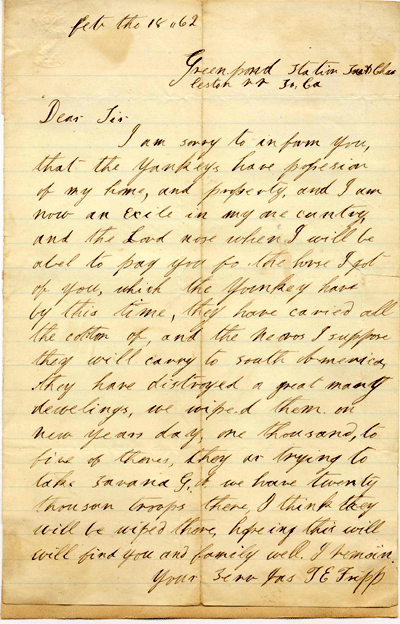 feb the 18 "62
Greenpond Station
leston
Dear Sir
I am sorry to inform you,
that the Yankeys have possesion
of my home, and property, and I am
now an Exile in my one cuntry,
and the Lord nose when I will be
abel to pay you fo the horse I got
of you, which the Yankey have
by this time, they have caried all
the cotton of, and the negros I suppose
they will carry to south america,
they have distroyed a great many
dewelings, we wiped them on
new years day, one thousand, to
five of thores, they ar trying to
take Savana G. we have twenty
thousan troops there, I think they
will be wiped there, hopeing this will
will find you and family well. I remain
Your Serv T E Fripp